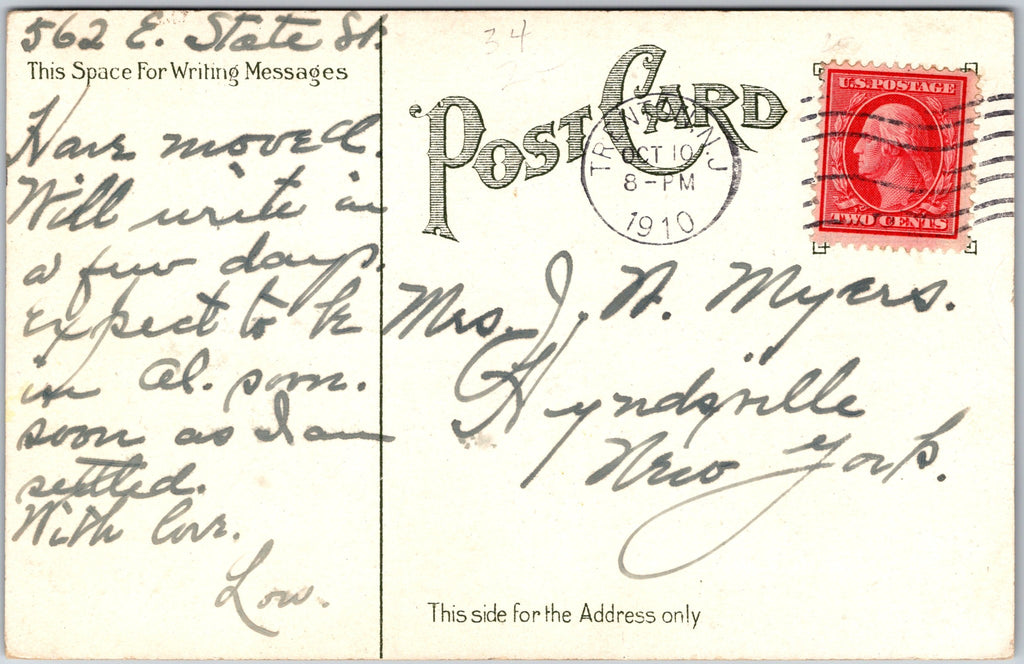 562 E. State St.
This Space For Writing Messages
Have moved.
Will write in
a few days.
expect to be
in Al. soon.
soon as I am
settled.
With love.
Low.
34
POST CARD
TRENTON, N.J.
OCT 10
8-PM
1910
U.S. POSTAGE
TWO CENTS
Mrs. J. N. Myers.
Hyndsville
New York.
This side for the Address only